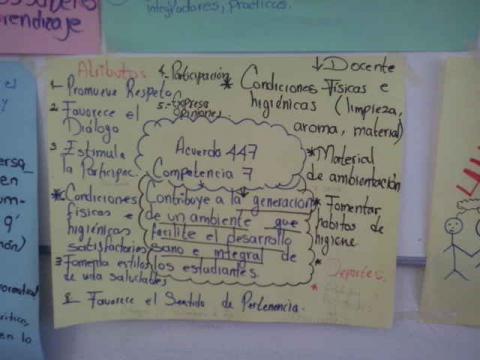 integradores, prácticos.
Atributos
1- Promueve Respeto
2 Favorece el
Diálogo
3 Estimula
la participac.
* Condiciones
físicas e
higiénicas
satisfactorias
3 Fomenta estilos
de vida saludables
8- Favorece el Sentido de Pertenencia.
4- Participación
5- Expresa
Opiniones
Acuerdo 447
Competencia 7
Contribuye a la generación
de un ambiente que
facilite el desarrollo
sano e integral de
los estudiantes
↓ Docente
* Condiciones Físicas e
higiénicas (limpieza,
aroma, material)
* Material
de ambientación
* Fomentar
hábitos de
higiene
* Deportes.